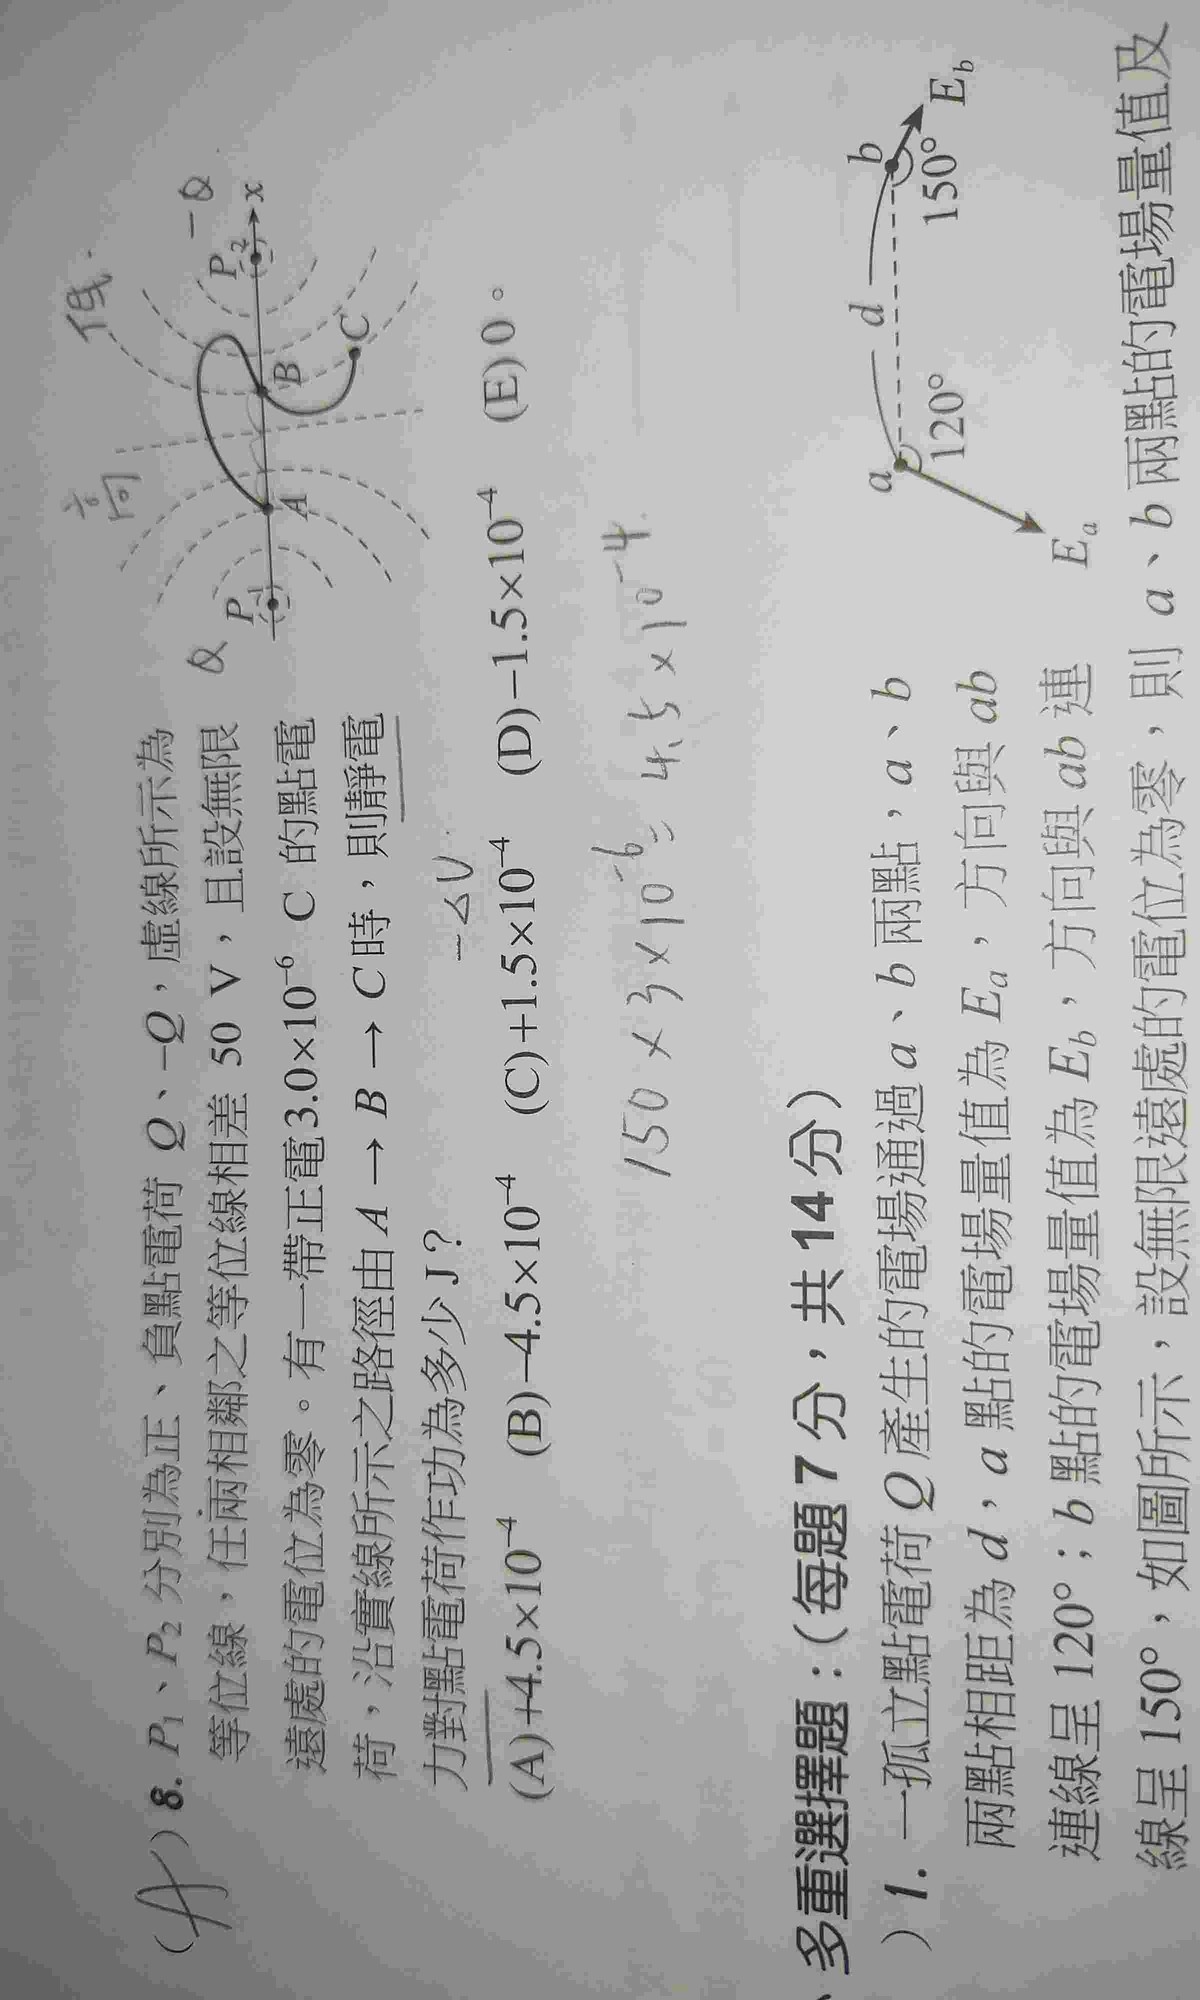 (A) 8. P₁、P₂ 分別為正、負點電荷 Q、-Q，虛線所示為
等位線，任兩相鄰之等位線相差 50 V，且設無限
遠處的電位為零。有一帶正電3.0×10⁻⁶ C 的點電
荷，沿實線所示之路徑由 A → B → C時，則靜電
力對點電荷作功為多少 J？
-ΔU
(A)+4.5×10⁻⁴ (B)−4.5×10⁻⁴ (C)+1.5×10⁻⁴ (D)−1.5×10⁻⁴ (E)0。
高
低
Q
-Q
P₁
P₂
x
A
B
C
150×3×10⁻⁶=4.5×10⁻⁴
、多重選擇題：（每題 7 分，共 14 分）
) 1. 一孤立點電荷 Q 產生的電場通過 a、b 兩點，a、b
兩點相距為 d，a 點的電場量值為 Eₐ，方向與 ab
連線呈 120°；b 點的電場量值為 E_b，方向與 ab 連
線呈 150°，如圖所示，設無限遠處的電位為零，則 a、b 兩點的電場量值及
a
d
b
120°
150°
Eₐ
E_b